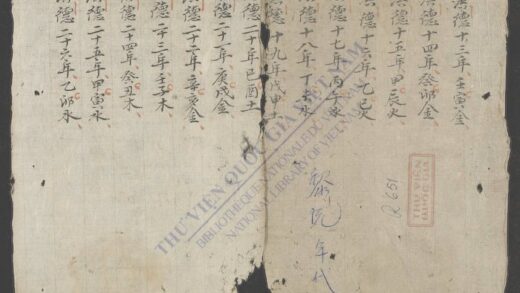 德十三年壬寅金
洪德十四年癸卯金
洪德十五年甲辰火
洪德十六年乙巳火
洪德十七年丙午水
洪德十八年丁未水
德十九年戊申土
德二十年己酉土
德二十一年庚戌金
德二十二年辛亥金
德二十三年壬子木
德二十四年癸丑木
洪德二十五年甲寅水
德二十六年乙卯水
黎阮年代
R 651
THƯ VIỆN
QUỐC GIA
THƯ VIỆN QUỐC GIA VIỆT NAM
BIBLIOTHÈQUE NATIONALE DU VIETNAM
NATIONAL LIBRARY OF VIETNAM